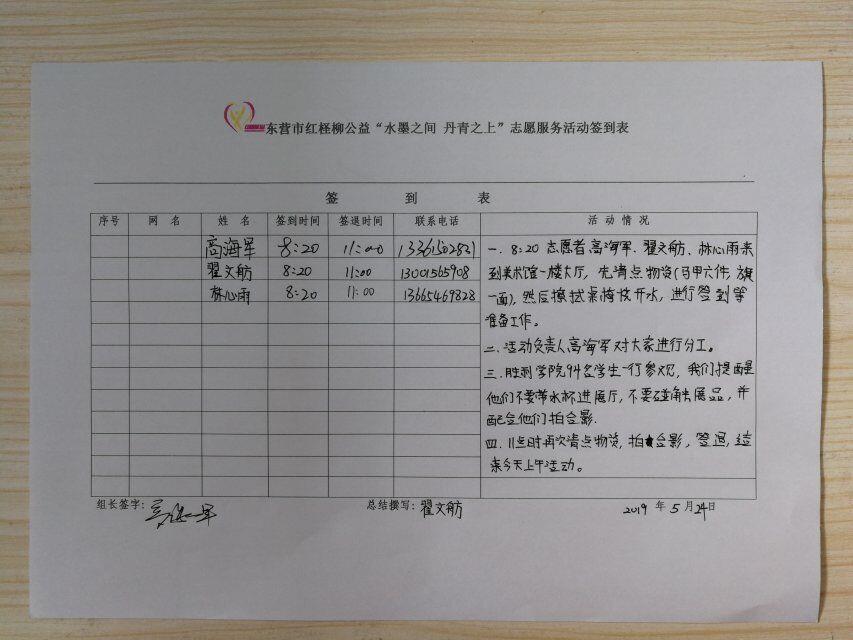 东营市红柽柳公益“水墨之间 丹青之上”志愿服务活动签到表
签 到 表
序号 网 名 姓 名 签到时间 签退时间 联系电话 活 动 情 况
高海军 8:20 11:00 13361502821
翟文舫 8:20 11:00 13001565908
林心雨 8:20 11:00 13665469828
一. 8:20 志愿者高海军、翟文舫、林心雨来
到美术馆一楼大厅, 先清点物资(马甲六件, 旗
一面), 然后擦拭桌椅 开水, 进行签到等
准备工作。
二. 活动负责人高海军对大家进行分工。
三. 胜利学院94名学生一行参观, 我们提醒
他们不要带水杯进展厅, 不要碰触展品, 并
配合他们拍合影.
四. 11点时再次清点物资, 拍合影, 签退, 结
束今天上午活动。
组长签字: 高海军 总结撰写: 翟文舫 2019 年 5 月 24日